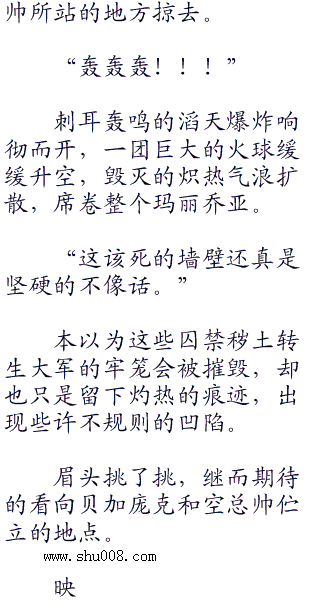 帅所站的地方掠去。
“轰轰轰！！！”
刺耳轰鸣的滔天爆炸响
彻而开，一团巨大的火球缓
缓升空，毁灭的炽热气浪扩
散，席卷整个玛丽乔亚。
“这该死的墙壁还真是
坚硬的不像话。”
本以为这些囚禁秽土转
生大军的牢笼会被摧毁，却
也只是留下灼热的痕迹，出
现些许不规则的凹陷。
眉头挑了挑，继而期待
的看向贝加庞克和空总帅伫
立的地点。
www.shu008.com
映